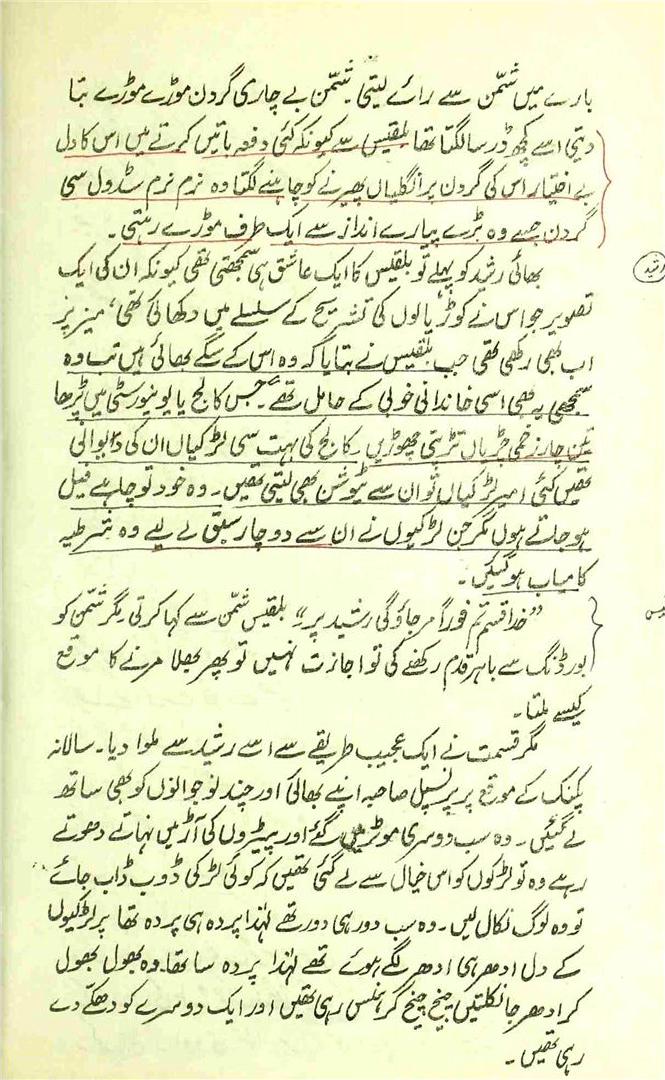 بارے میں شمّن سے رائے لیتی۔ شمّن بے چاری گردن موڑے موڑے بتا
دیتی اسے کچھ ڈر سا لگتا تھا بلقیس سے کیونکہ کئی دفعہ باتیں کرتے میں اس کا دل
بے اختیار اس کی گردن پر انگلیاں پھیرنے کو چاہنے لگتا وہ نرم نرم سڈول سی
گردن جسے وہ بڑے پیارے انداز سے ایک طرف موڑے رہتی۔
بھائی رشید کو پہلے تو بلقیس کا ایک عاشق ہی سمجھتی تھی کیونکہ ان کی ایک
رشید
تصویر جو اس نے کوڑیالوں کی تشریح کے سلسلے میں دکھائی تھی، میز پر
اب بھی رکھی تھی جب بلقیس نے بتایا کہ وہ اس کے سگے بھائی ہیں تب وہ
سمجھی یہ بھی اسی خاندانی خوبی کے حامل تھے۔ جس کالج یا یونیورسٹی میں پڑھا
تین چار زخمی چڑیاں تڑپتی چھوڑیں۔ کالج کی بہت سی لڑکیاں ان کی دیوانی
تھیں کئی امیر لڑکیاں تو ان سے ٹیوشن بھی لیتی تھیں۔ وہ خود تو چاہے فیل
ہو جاتے ہوں مگر جن لڑکیوں نے ان سے دو چار سبق لے لیے وہ شرطیہ
کامیاب ہو گئیں۔
”خدا قسم تم فوراً مر جاؤ گی رشید پر“ بلقیس شمّن سے کہا کرتی مگر شمّن کو
بورڈنگ سے باہر قدم رکھنے کی تو اجازت نہیں تو پھر بھلا مرنے کا موقع
کیسے ملتا۔
مگر قسمت نے ایک عجیب طریقے سے اسے رشید سے ملوا دیا۔ سالانہ
پکنک کے موقع پر پرنسپل صاحبہ اپنے بھائی اور چند نوجوانوں کو بھی ساتھ
لے گئیں۔ وہ سب دوسری موٹر میں گئے اور پیڑوں کی آڑ میں نہاتے دھوتے
رہے وہ تو لڑکوں کو اس خیال سے لے گئی تھیں کہ کوئی لڑکی ڈوب ڈاب جائے
تو وہ لوگ نکال لیں۔ وہ سب دور ہی دور تھے لہٰذا پردہ ہی پردہ تھا پر لڑکیوں
کے دل ادھر ہی ادھر لگے ہوئے تھے لہٰذا پردہ سا تھا۔ وہ بھول بھول
کر ادھر جا نکلتیں چیخ چیخ کر ہنس رہی تھیں اور ایک دوسرے کو دھکے دے
رہی تھیں۔